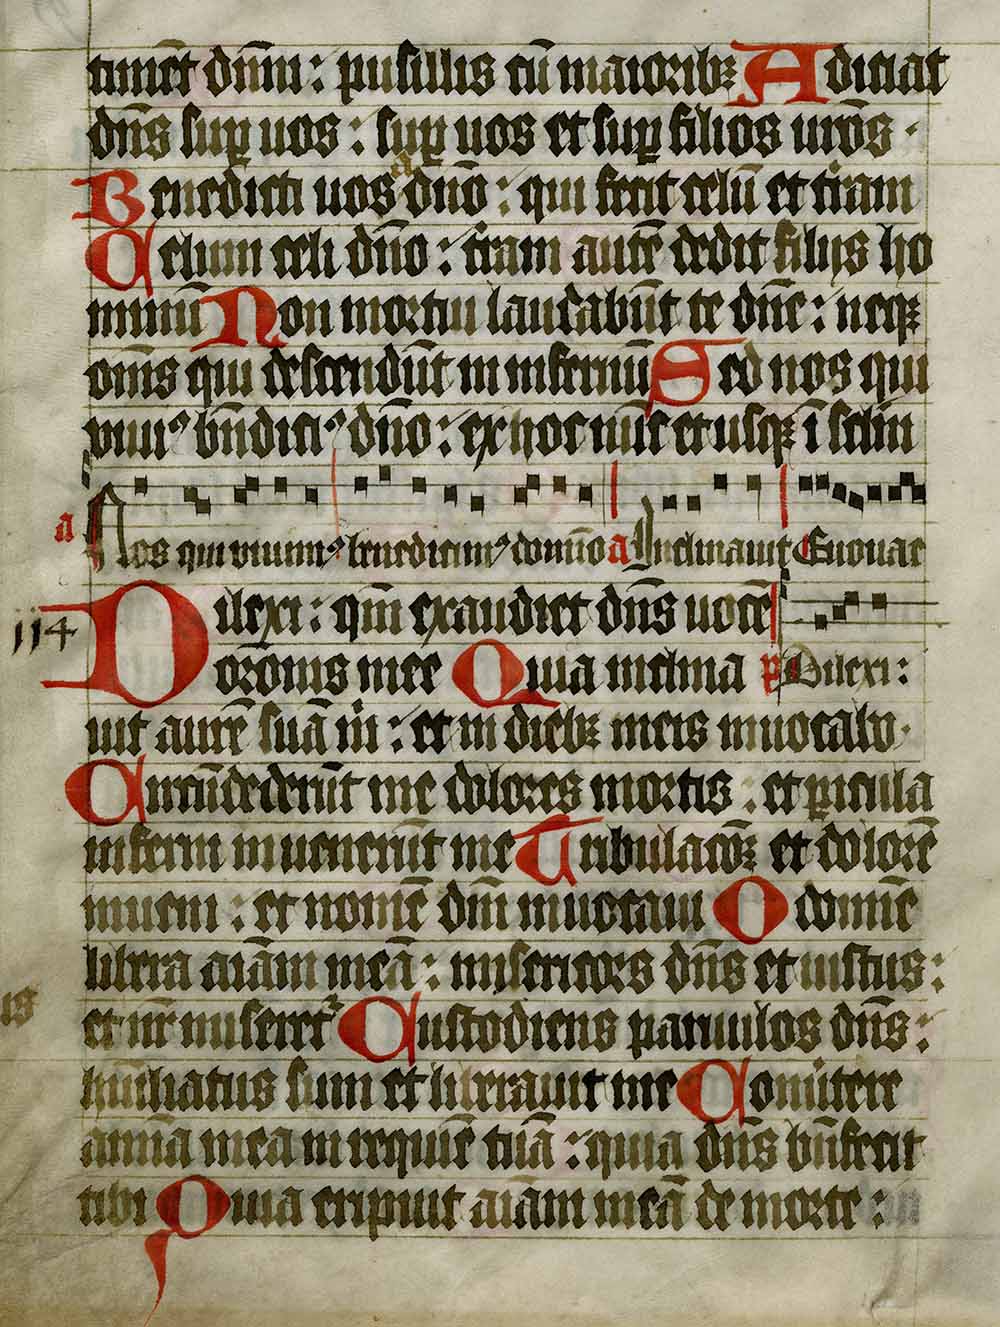 timēt dn̄m : pusillis cū maioribꝫ Adiciat
dn̄s suꝑ uos : suꝑ uos et suꝑ filios uros ·
Benedicti uos a dn̄o : qui fecit celū et t̄ram
Celum celi dn̄o : t̄ram autē dedit filijs ho
minū Non mortui laudabūt te dn̄e : neqꝫ
om̄s qui descendūt in infernū Sed nos qui
viuiꝰ bn̄diciꝰ dn̄o : ex hoc nūc et usqꝫ ī sclm
a Nos qui viuimꝰ benedicimꝰ domīno a Inclinauit Euouae
114 Dilexi : qm̄ exaudiet dn̄s uocē
or̄onis mee Quia inclina p̄ Dilexi :
uit aurē suā m : et in diebꝫ meis inuocabo ·
Circūdederūt me dolores mortis : et ꝑicula
inferni inuenerūt me Tribulacōꝫ et dolorē
inueni : et nomē dn̄i inuocaui O domīe
libera aīam meā : misericors dn̄s et iustus :
et nr̄ miseretꝰ Custodiens paruulos dn̄s :
hūiliatus sum et liberauit me Conūtere
anīa mea in requiē tuā : quia dn̄s bn̄fecit
tibi Quia eripuit aīam meā de morte :